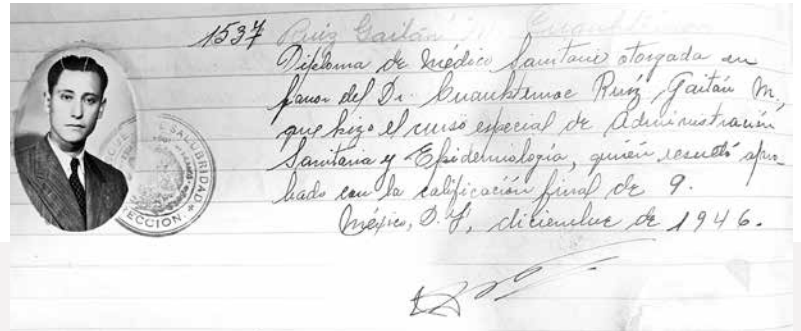 1537 Ruiz Gaitán M. Cuauhtémoc
Diploma de Médico Sanitario otorgada en
favor del Dr. Cuauhtemoc Ruiz Gaitán M.,
que hizo el curso especial de Administración
Sanitaria y Epidemiología, quién resultó apro-
bado con la calificación final de 9.
México, D. F., diciembre de 1946.
SALUBRIDAD
ECCION.